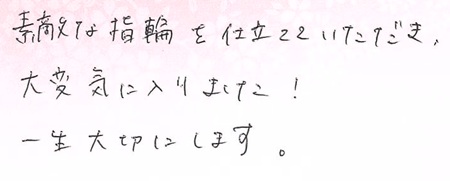 素敵な指輪を仕立ていただき、
大変気に入りました！
一生大切にします。